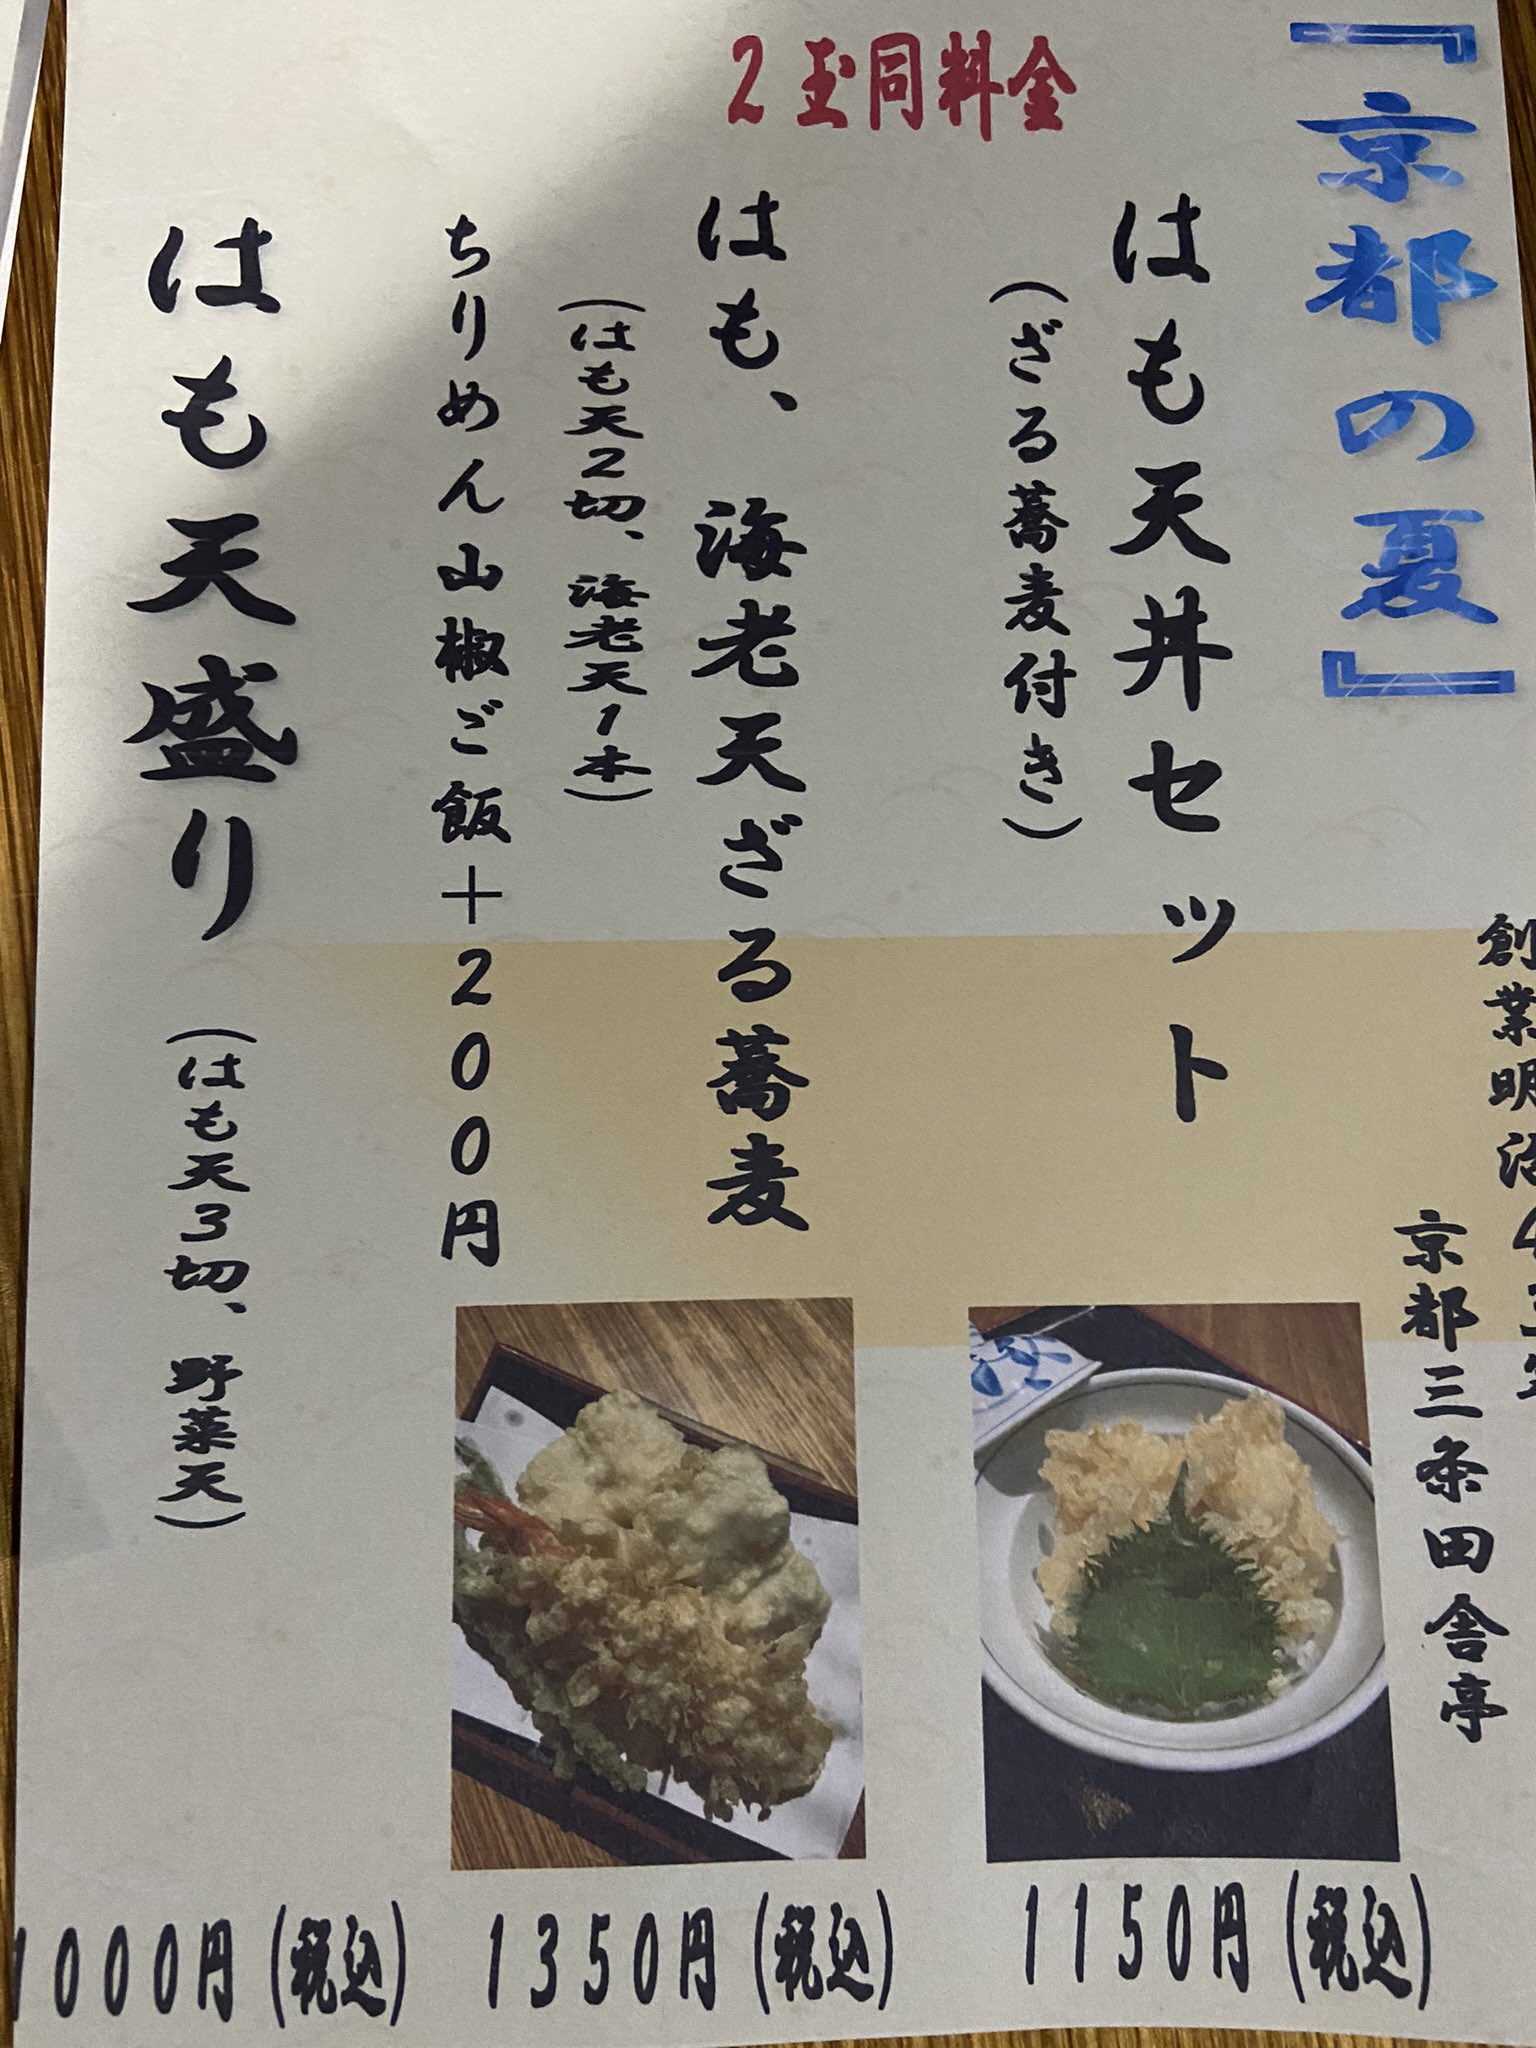 『京都の夏』
創業明治4
京都三条田舎亭
2玉同料金
はも天丼セット
(ざる蕎麦付き)
1150円(税込)
はも、海老天ざる蕎麦
(はも天2切、海老天1本)
ちりめん山椒ご飯+200円
1350円(税込)
はも天盛り(はも天3切、野菜天)
1000円(税込)